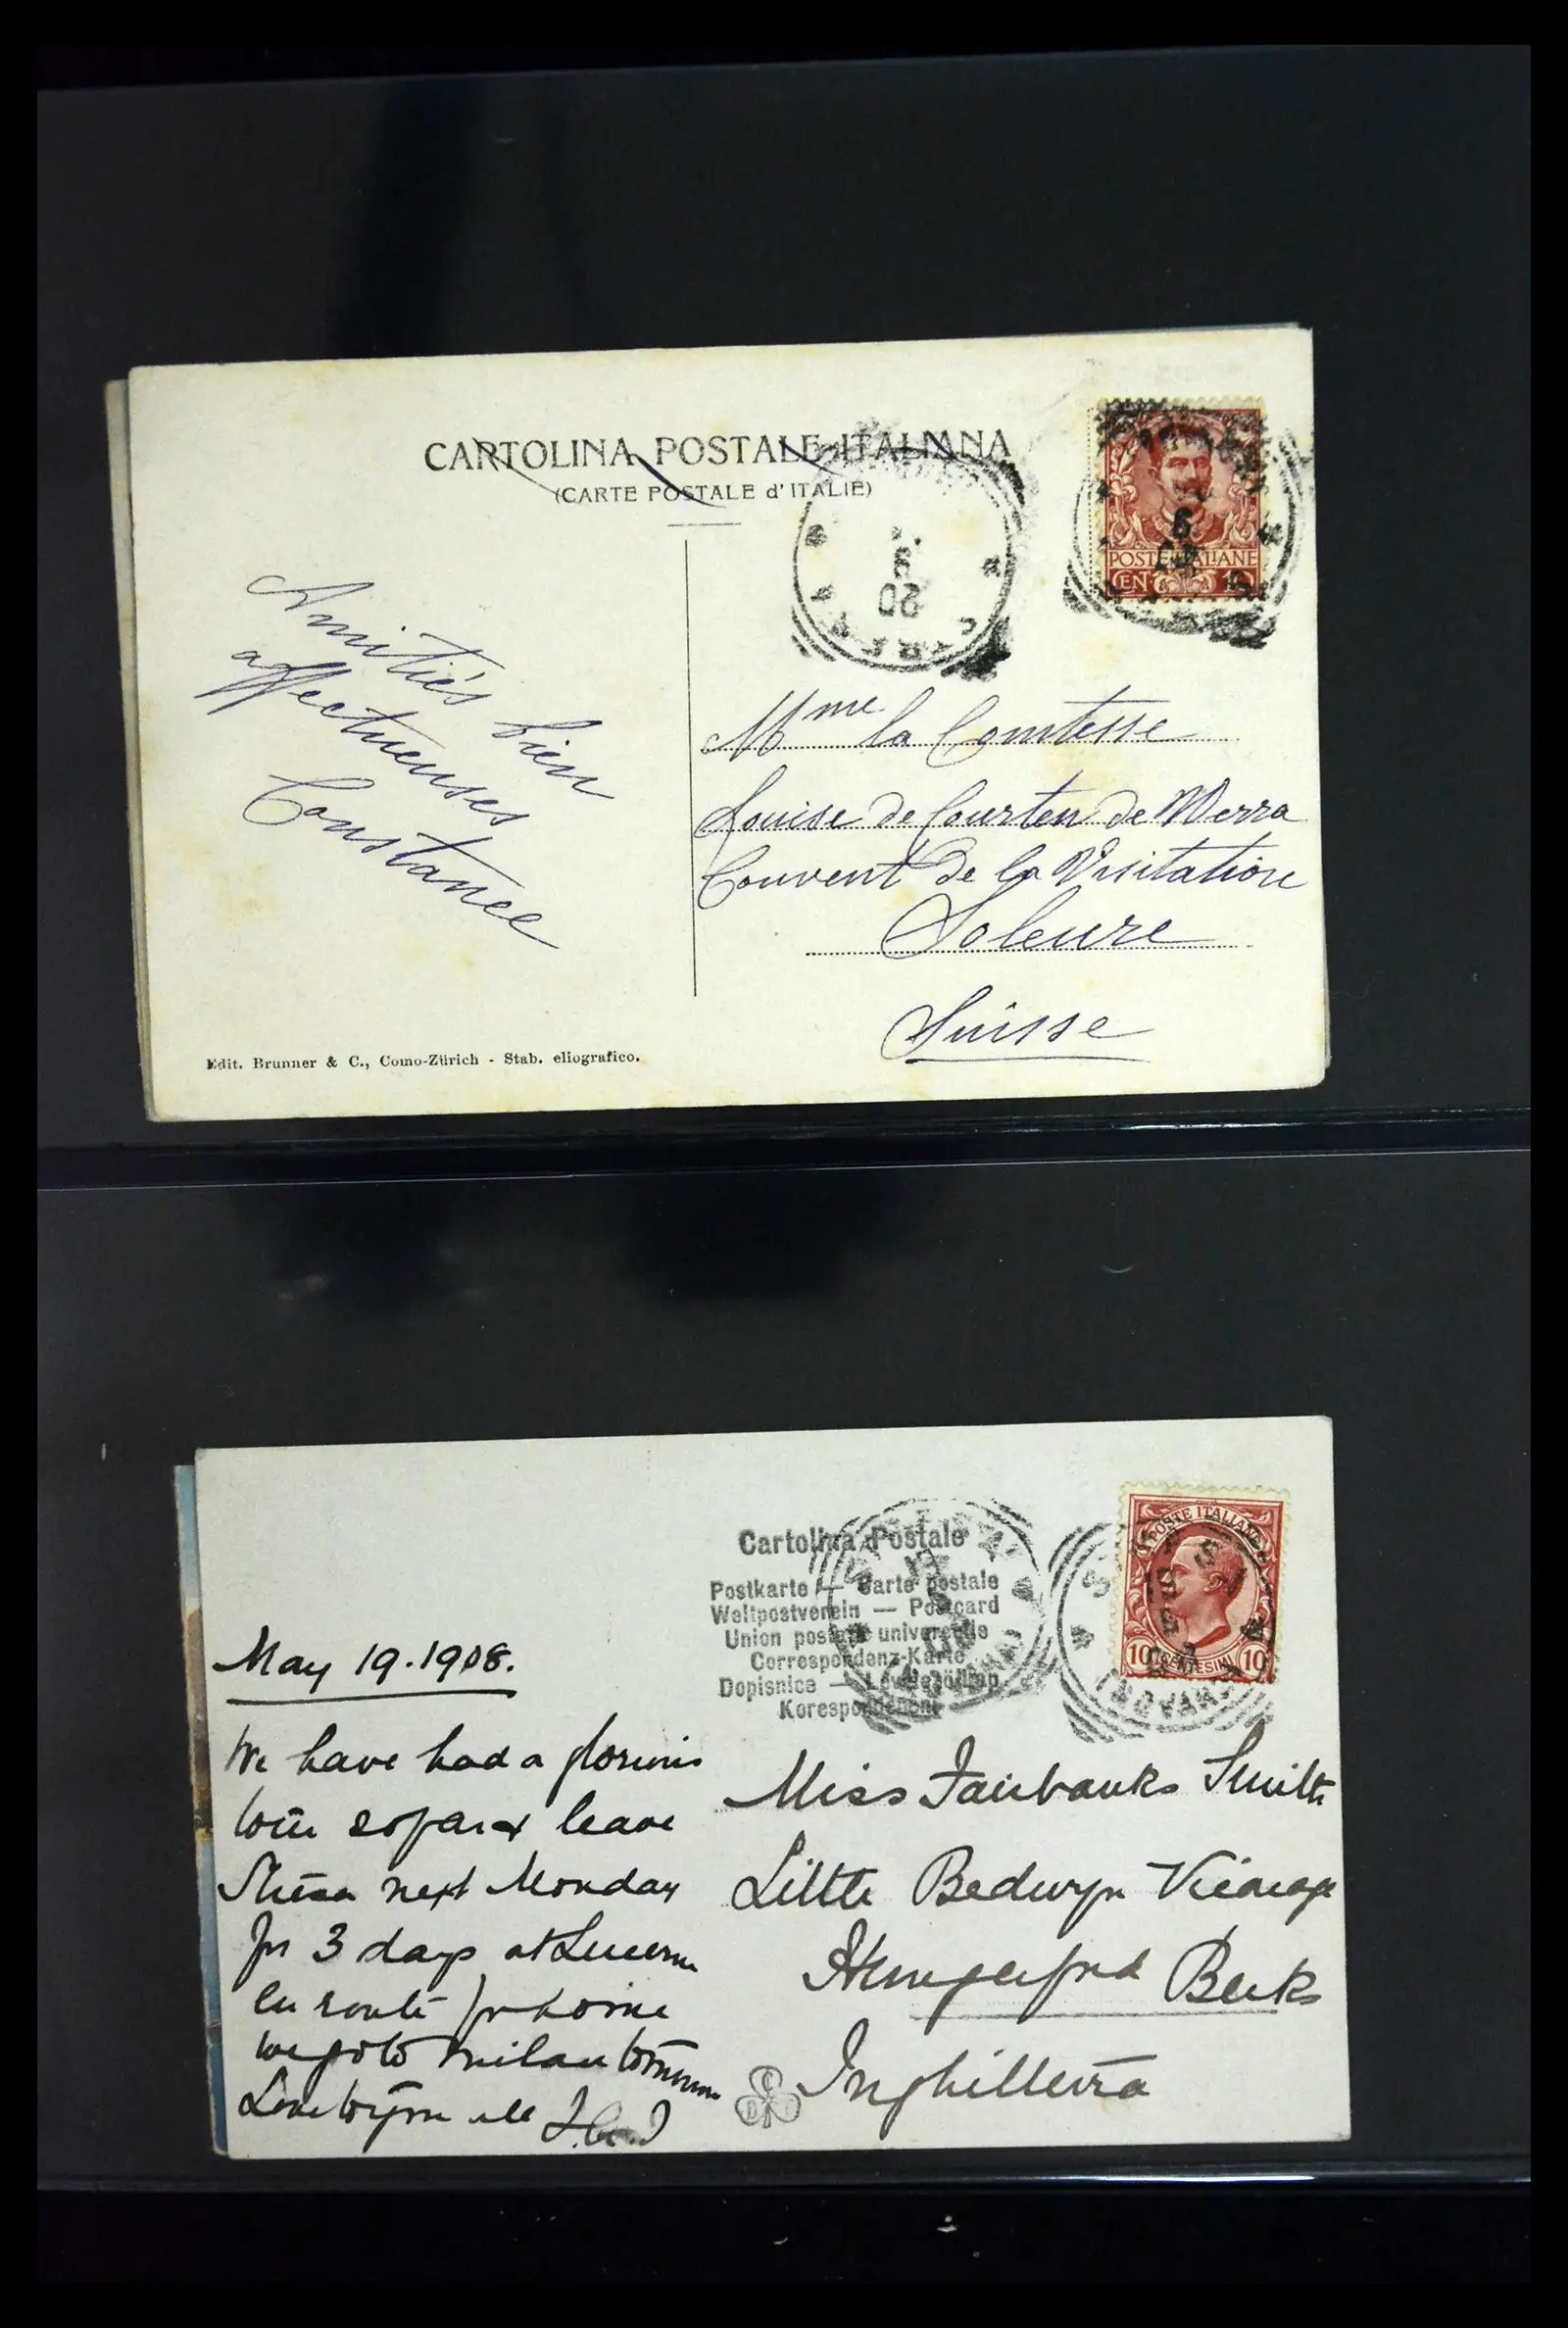 CARTOLINA POSTALE ITALIANA
(CARTE POSTALE d'ITALIE)
POSTE ITALIANE
CEN. 10
Amitiés bien
affectueuses
Constance
Mme la Comtesse
Louise de Courten de Werra
Couvent de la Visitation
Soleure
Suisse
Edit. Brunner & C., Como-Zürich - Stab. eliografico.
Cartolina Postale
Postkarte — Carte postale
Weltpostverein — Postcard
Union postale universelle
Correspondenz-Karte
Dopisnice — Levelezőlap
POSTE ITALIANE
10 CENTESIMI 10
May 19.1908.
We have had a glorious
time so far & leave
Stresa next Monday
for 3 days at Lucerne
en route for home
we go to Milan tomorrow
Love to you all
Miss Fairbanks Smith
Little Bedwyn Vicarage
Hungerford Berks
Inghilterra